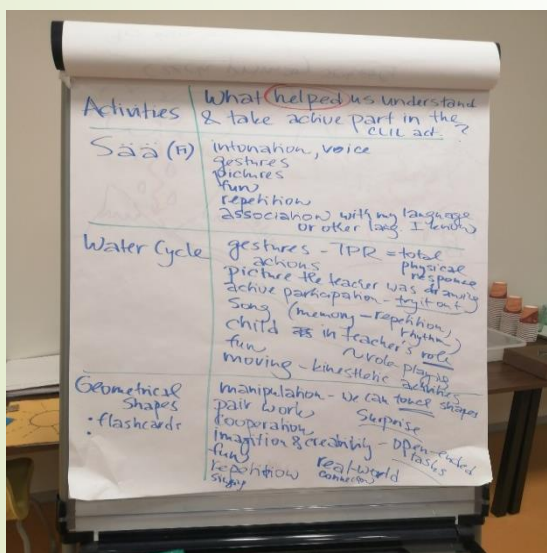 Activities
What helped us understand
& take active part in the
CLIL act.?
Sää (FI)
intonation, voice
gestures
pictures
fun
repetition
association with my language
or other lang. I know
Water Cycle
gestures - TPR = total
actions physical
response
picture the teacher was drawing
active participation - try it out
song (memory - repetition,
rhythm)
child in teacher's role
fun ~ role-playing
moving - kinesthetic activities
Geometrical
Shapes
• flashcards
•
manipulation - we can touch shapes
pair work
cooperation Surprise
imagition & creability - open-ended
fun tasks
repetition real-world
connection